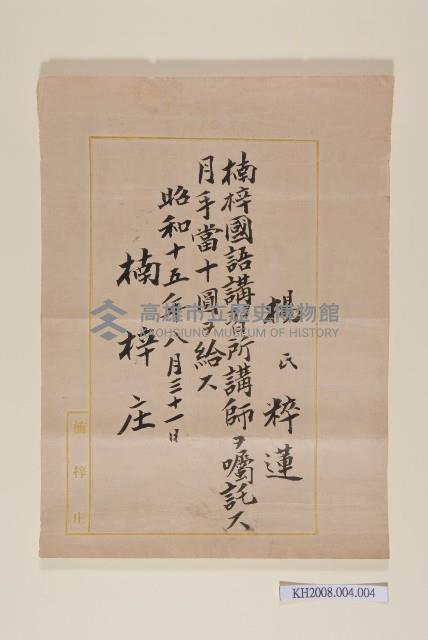 楊氏粹蓮
楠梓國語講習所講師ヲ囑託ス
月手當十圓ヲ給ス
昭和十五年八月三十一日
楠梓庄
楠梓庄
高雄市立歷史博物館
KAOHSIUNG MUSEUM OF HISTORY
KH2008.004.004